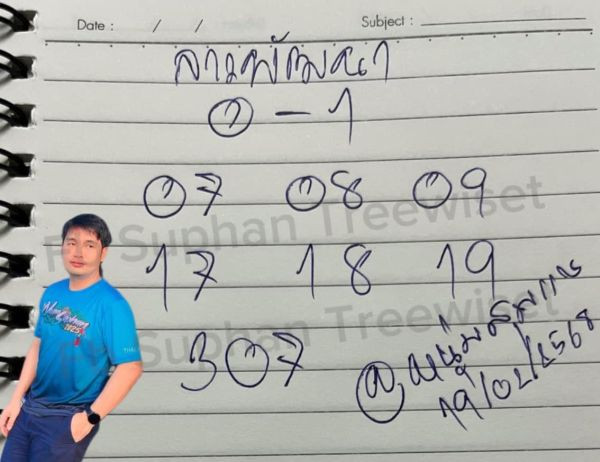 Date : / /
Subject :
ลาวพัฒนา
0 - 1
07 08 09
17 18 19
307
19/02/2568
Suphan Treewiset
Suphan Treewiset